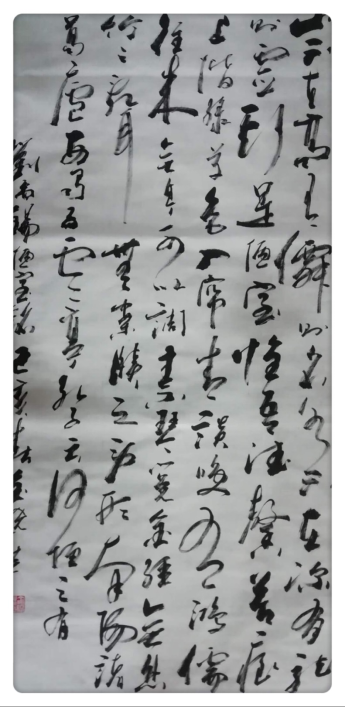 山不在高有僊则名水不在深有龙
则灵斯是陋室惟吾德馨苔痕
上階绿草色入帘青談咲有鸿儒
往来无白丁可以調素琴閲金經無丝
竹之乱耳無案牍之劳形南阳諸
葛廬西蜀子云亭孔子云何陋之有
劉禹锡陋室铭己亥春金